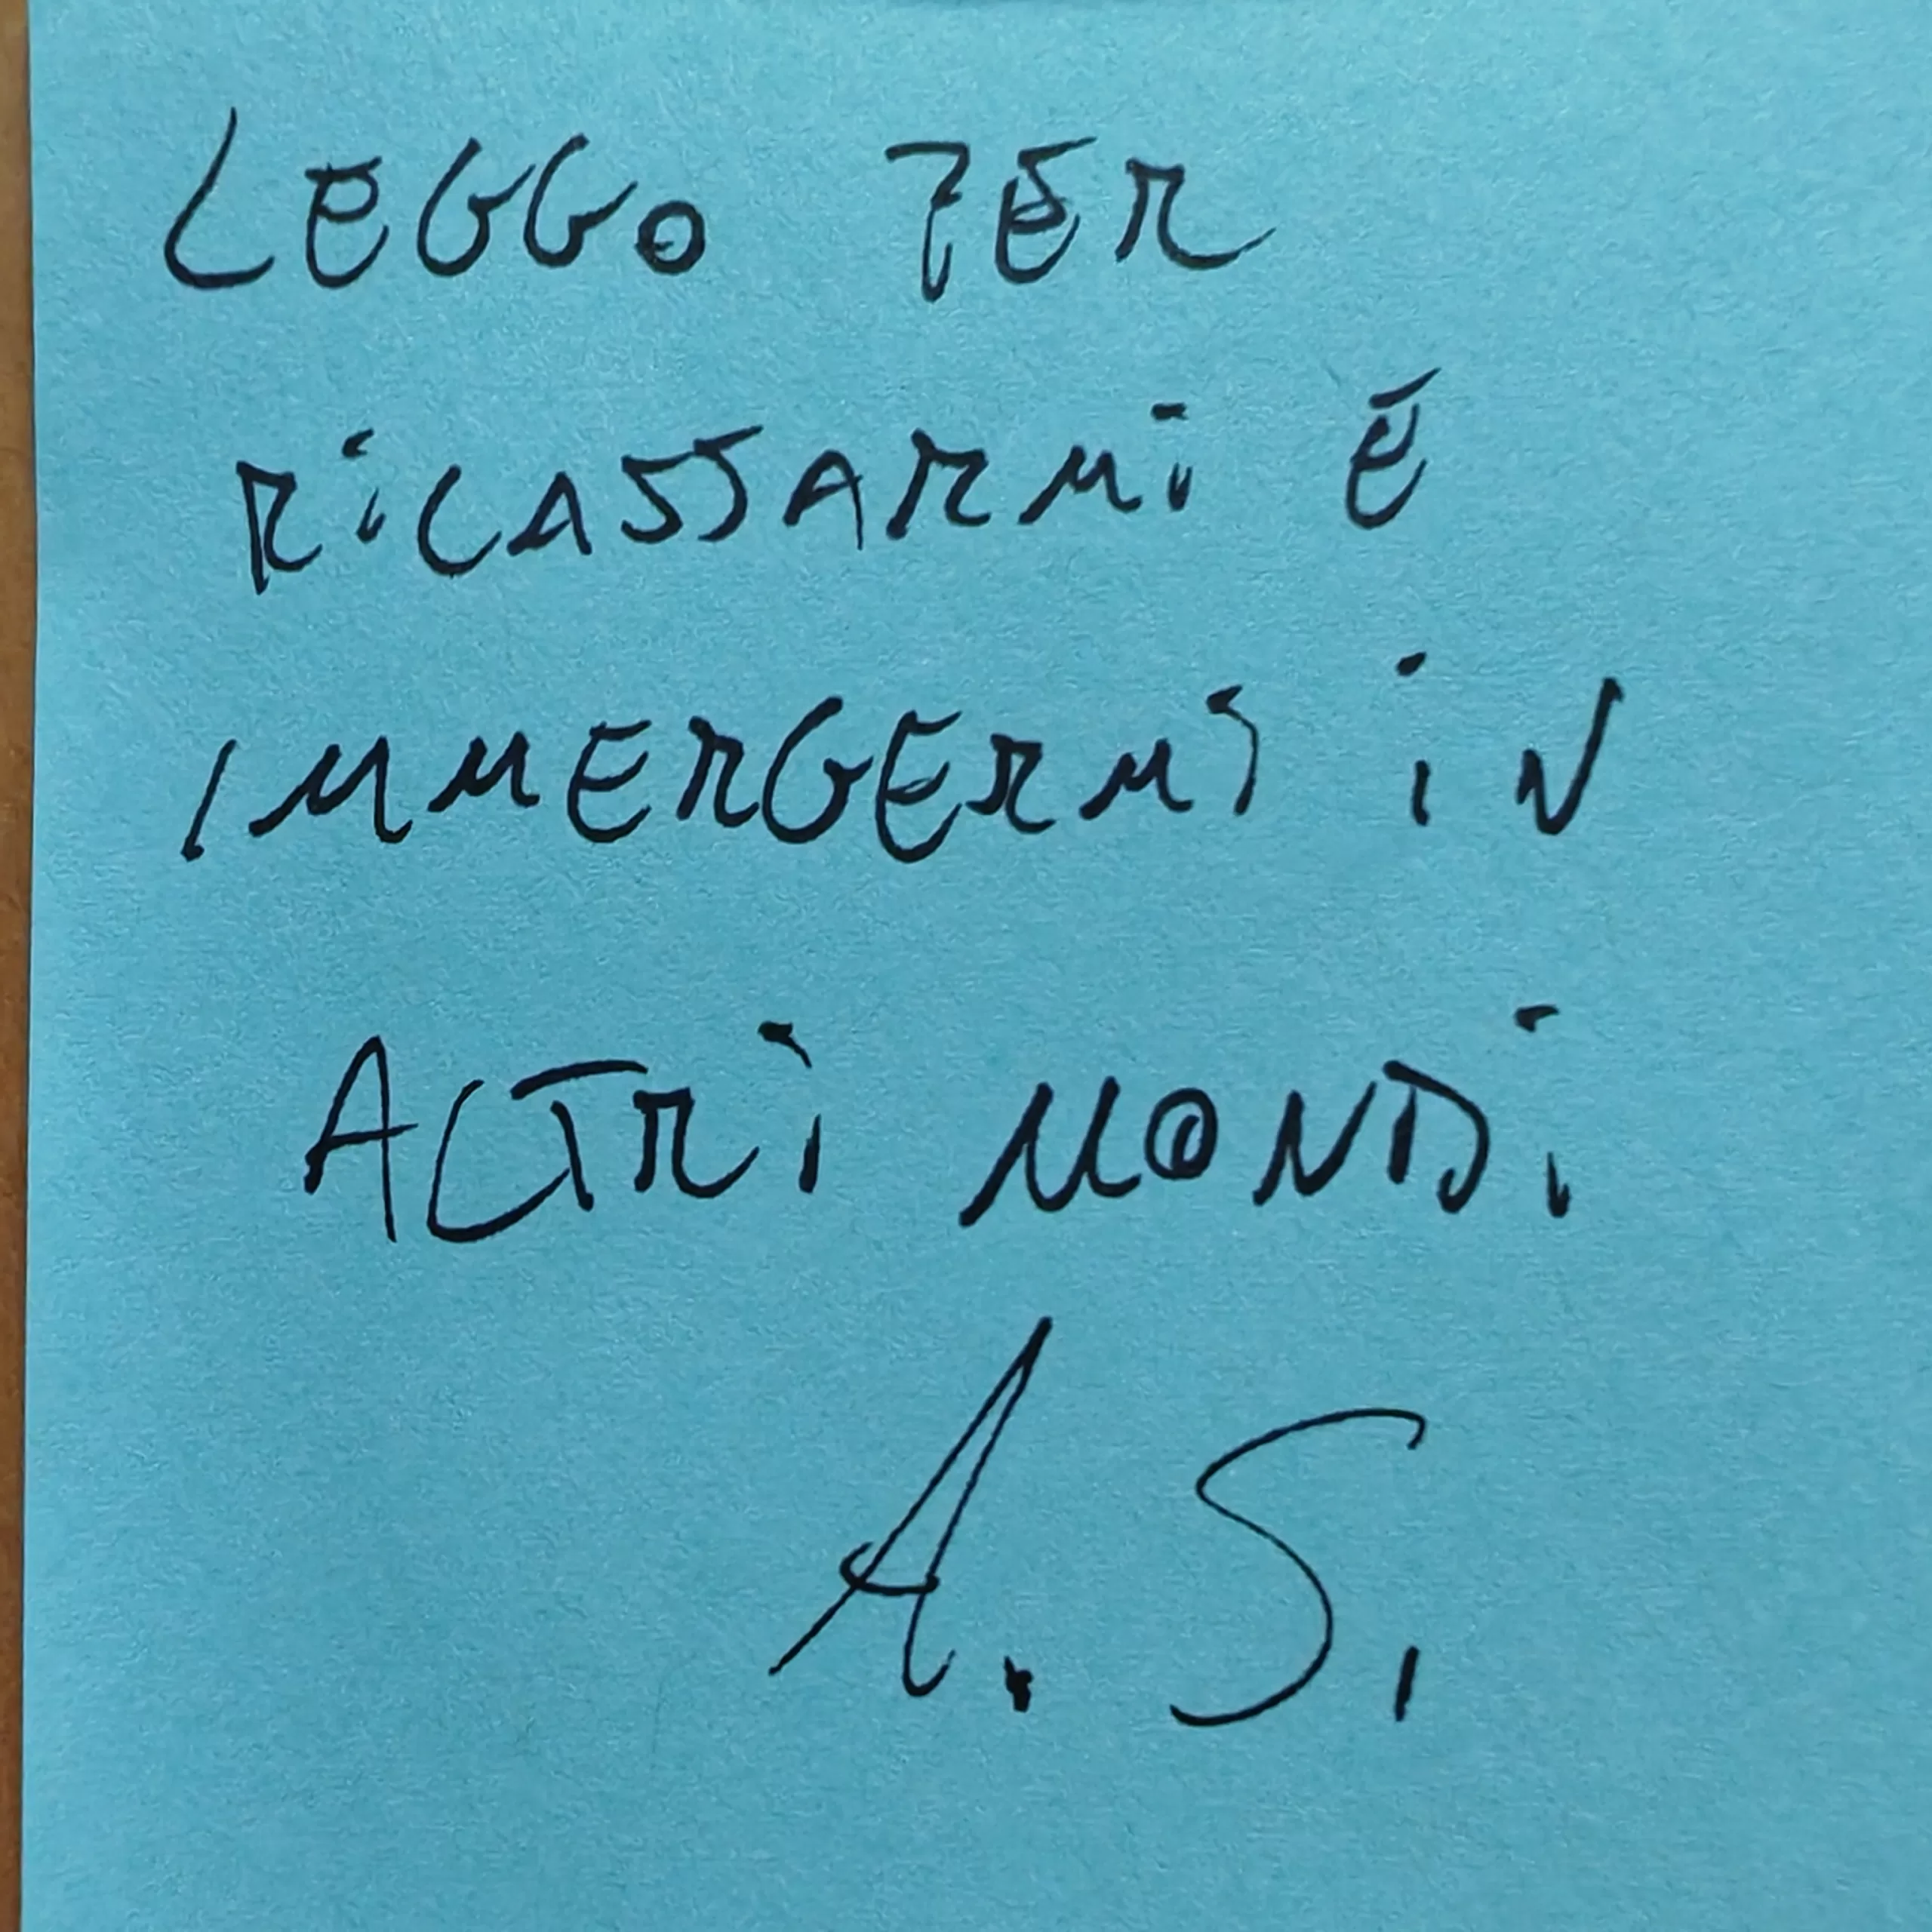 LEGGO PER
RILASSARMI E
IMMERGERMI IN
ALTRI MONDI
A. S.